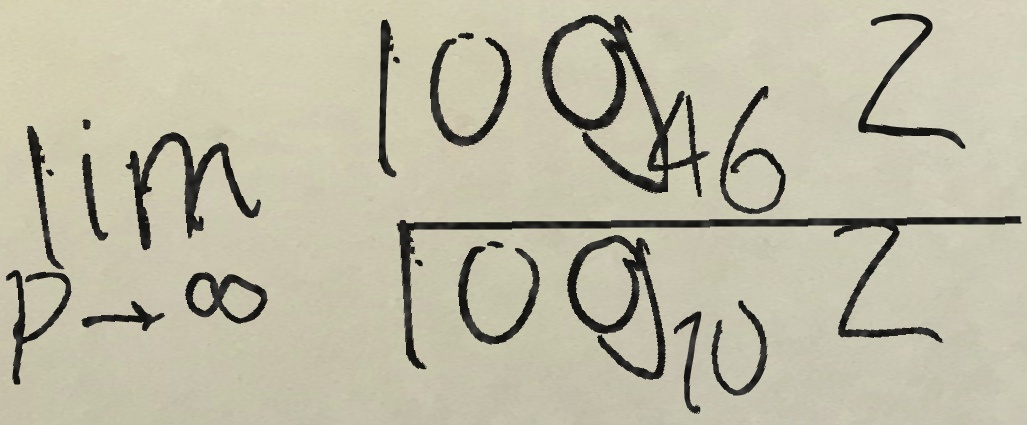 \lim_{p \to \infty} \frac{\log_{46} z}{\log_{10} z}